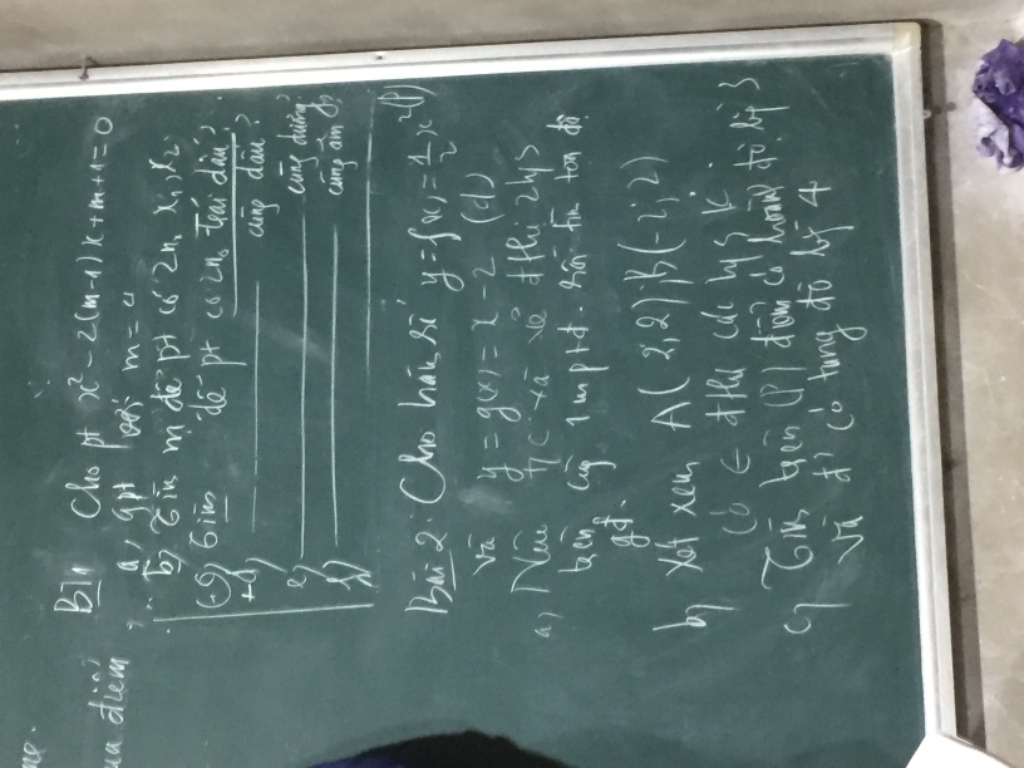 B1 Cho pt x² - 2(m-1)x + m + 1 = 0
a, gpt với m = -4
b, Tìm m để pt có 2n₀ x₁, x₂
c) Tìm để pt có 2n₀ trái dấu
d) cùng dấu
e) cùng dương
f) cùng âm
Bài 2: Cho hàm số y = f(x) = 1/2 x² (P)
và y = g(x) = x - 2 (d)
a) Nêu T/C và vẽ đthị 2 h/s
trên cùng 1 mptđ. rồi tìm tọa độ
gđ.
b) Xét xem A(2,2) B(-2;2)
Có ∈ đthị các h/s k.
c) Tìm trên (P) điểm có hoành độ là 3
và đ' có tung độ là 4
ua điểm